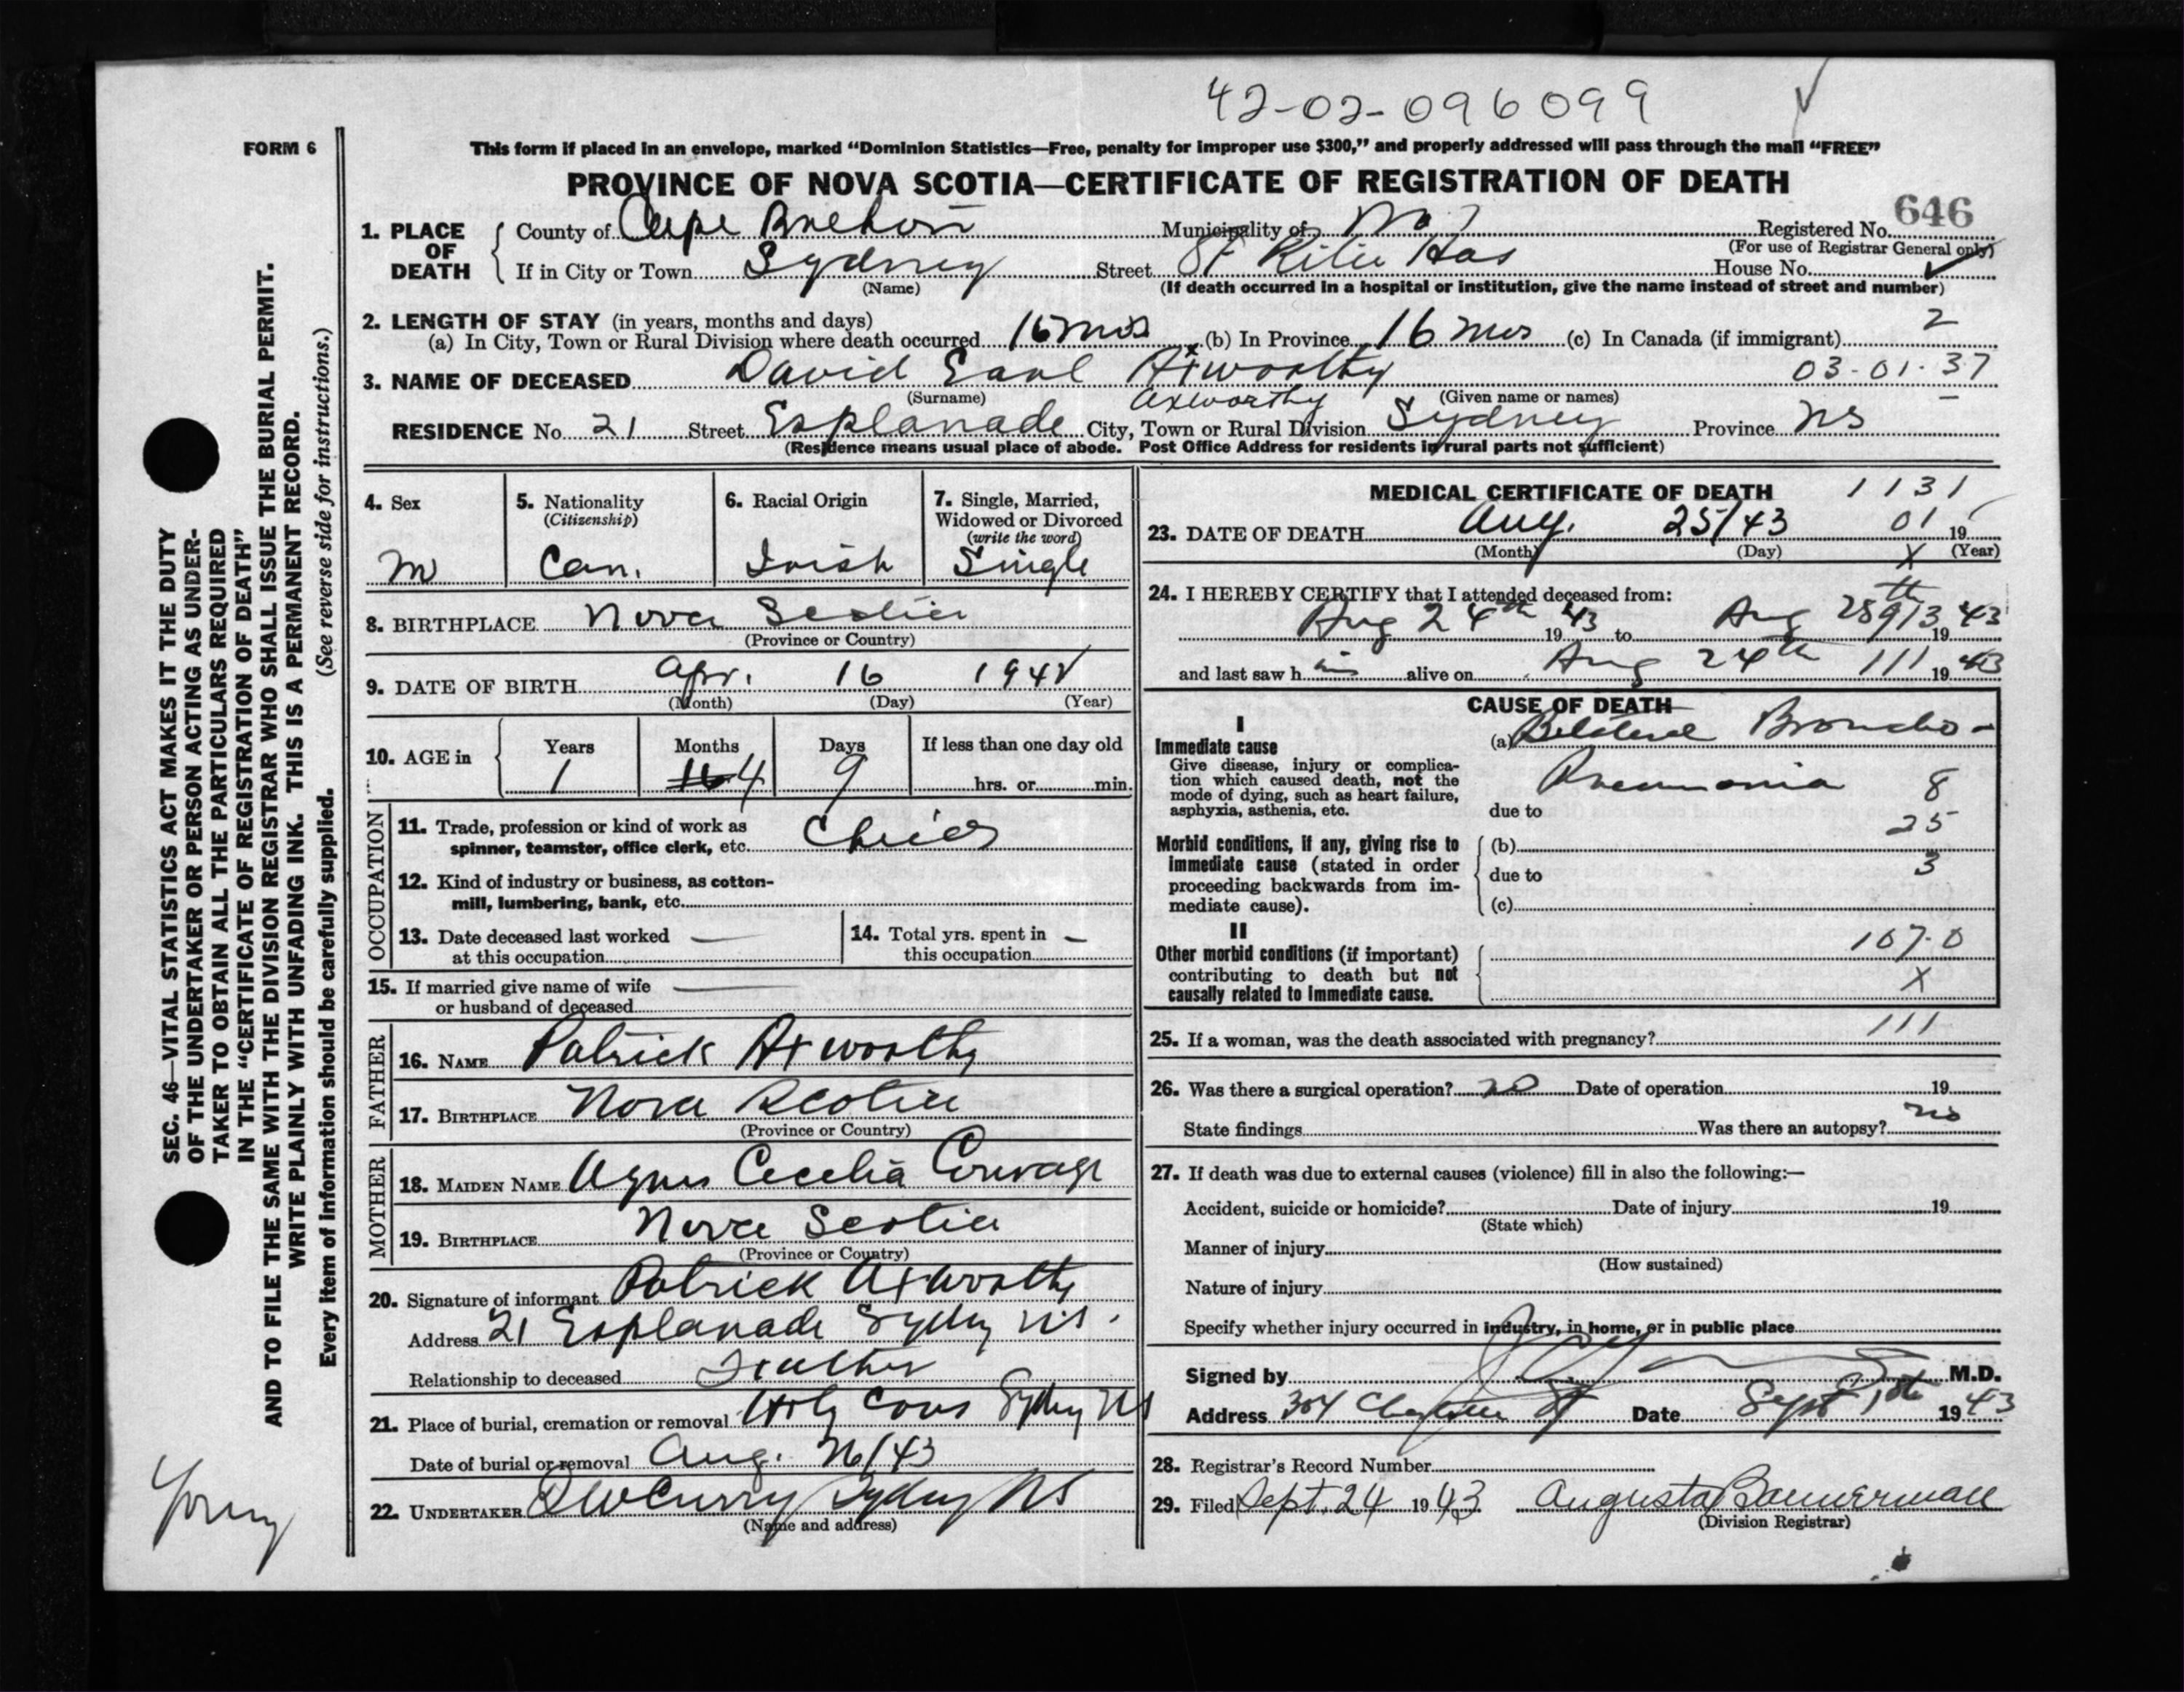 42-02-096099
FORM 6
This form if placed in an envelope, marked “Dominion Statistics—Free, penalty for improper use $300,” and properly addressed will pass through the mail “FREE”
PROVINCE OF NOVA SCOTIA—CERTIFICATE OF REGISTRATION OF DEATH
646
1. PLACE OF DEATH
County of Cape Breton Municipality of No 7 Registered No.
(For use of Registrar General only)
If in City or Town Sydney Street St Rita Hos House No.
(Name) (If death occurred in a hospital or institution, give the name instead of street and number)
2. LENGTH OF STAY (in years, months and days) 2
(a) In City, Town or Rural Division where death occurred 16 mos (b) In Province 16 mos (c) In Canada (if immigrant)
3. NAME OF DECEASED David Earl Axworthy 03-01-37
(Surname) Axworthy (Given name or names)
RESIDENCE No. 21 Street Esplanade City, Town or Rural Division Sydney Province NS
(Residence means usual place of abode. Post Office Address for residents in rural parts not sufficient)
4. Sex
M
5. Nationality
(Citizenship)
Can.
6. Racial Origin
Irish
7. Single, Married,
Widowed or Divorced
(write the word)
Single
8. BIRTHPLACE Nova Scotia
(Province or Country)
9. DATE OF BIRTH Apr. 16 1942
(Month) (Day) (Year)
10. AGE in
Years Months Days If less than one day old
1 16 4 9 hrs. or min.
OCCUPATION
11. Trade, profession or kind of work as
spinner, teamster, office clerk, etc. Child
12. Kind of industry or business, as cotton-
mill, lumbering, bank, etc.
13. Date deceased last worked —
at this occupation
14. Total yrs. spent in —
this occupation
15. If married give name of wife —
or husband of deceased
FATHER
16. NAME Patrick Axworthy
17. BIRTHPLACE Nova Scotia
(Province or Country)
MOTHER
18. MAIDEN NAME Agnes Cecelia
19. BIRTHPLACE Nova Scotia
(Province or Country)
20. Signature of informant Patrick Axworthy
Address 21 Esplanade Sydney N.S.
Relationship to deceased Father
21. Place of burial, cremation or removal Holy Cross Sydney NS
Date of burial or removal Aug. 26/43
22. UNDERTAKER D W Curry Sydney NS
(Name and address)
MEDICAL CERTIFICATE OF DEATH 1131
23. DATE OF DEATH Aug. 25/43 01 19
(Month) (Day) X (Year)
24. I HEREBY CERTIFY that I attended deceased from:
Aug 24th 1943 to Aug 25th 913 1943
and last saw him alive on Aug 24th 111 1943
CAUSE OF DEATH
I
Immediate cause
Give disease, injury or complica-
tion which caused death, not the
mode of dying, such as heart failure,
asphyxia, asthenia, etc.
(a) Bilateral Broncho-
Pneumonia 8
due to
25
Morbid conditions, if any, giving rise to
immediate cause (stated in order
proceeding backwards from im-
mediate cause).
(b)
due to 3
(c)
II
Other morbid conditions (if important)
contributing to death but not
causally related to immediate cause.
107-0
X
111
25. If a woman, was the death associated with pregnancy?
26. Was there a surgical operation? no Date of operation 19
State findings Was there an autopsy? no
27. If death was due to external causes (violence) fill in also the following:—
Accident, suicide or homicide? Date of injury 19
(State which)
Manner of injury
(How sustained)
Nature of injury
Specify whether injury occurred in industry, in home, or in public place
Signed by M.D.
Address 304 Charlotte St Date Sept 1943
28. Registrar's Record Number
29. Filed Sept. 24 1943 Augusta Bannerman
(Division Registrar)
SEC. 46—VITAL STATISTICS ACT MAKES IT THE DUTY
OF THE UNDERTAKER OR PERSON ACTING AS UNDER-
TAKER TO OBTAIN ALL THE PARTICULARS REQUIRED
IN THE “CERTIFICATE OF REGISTRATION OF DEATH”
AND TO FILE THE SAME WITH THE DIVISION REGISTRAR WHO SHALL ISSUE THE BURIAL PERMIT.
WRITE PLAINLY WITH UNFADING INK. THIS IS A PERMANENT RECORD.
Every item of information should be carefully supplied. (See reverse side for instructions.)